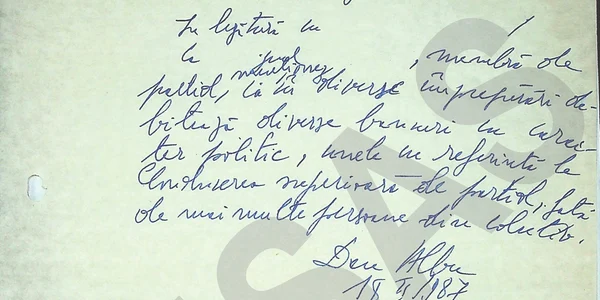 În legătură cu
la jud.
menționez
, membră de
partid, că în diverse împrejurări de-
bitează diverse bancuri cu carac-
ter politic, unele cu referință la
Conducerea superioară de partid, față
de mai multe persoane din colectiv.
Dan Albu
18 II/987